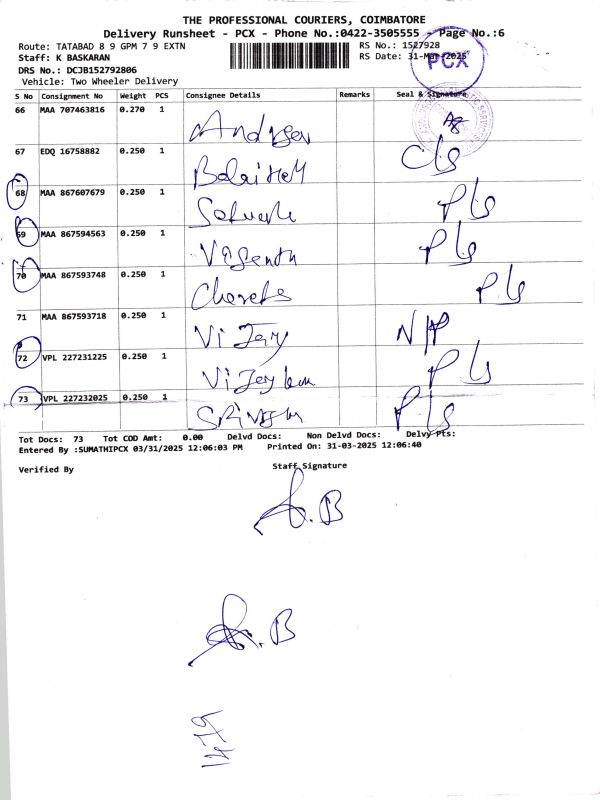 THE PROFESSIONAL COURIERS, COIMBATORE
Delivery Runsheet - PCX - Phone No.:0422-3505555 - Page No.:6
Route: TATABAD 8 9 GPM 7 9 EXTN RS No.: 1527928
Staff: K BASKARAN RS Date: 31-Mar-2025
PCX
DRS No.: DCJB152792806
Vehicle: Two Wheeler Delivery
S No Consignment No Weight PCS Consignee Details Remarks Seal & Signature
66 MAA 707463816 0.270 1
67 EDQ 16758882 0.250 1
68 MAA 867607679 0.250 1 P Ls
69 MAA 867594563 0.250 1 P Ls
70 MAA 867593748 0.250 1 P Ls
71 MAA 867593718 0.250 1 Vi Jay N/P
72 VPL 227231225 0.250 1 P Ls
73 VPL 227232025 0.250 1 P Ls
Tot Docs: 73 Tot COD Amt: 0.00 Delvd Docs: Non Delvd Docs: Delvy Pts:
Entered By :SUMATHIPCX 03/31/2025 12:06:03 PM Printed On: 31-03-2025 12:06:40
Verified By Staff Signature